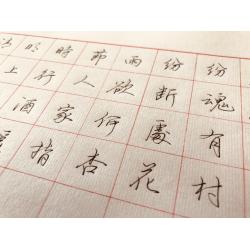 明時節雨紛紛
上行人欲断魂
酒家何處有
指杏花村